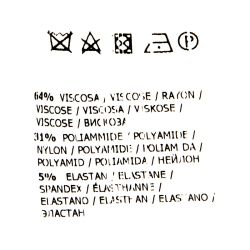 64% VISCOSA / VISCOSE / RAYON /
VISCOSE / VISCOSA / VISKOSE /
VISCOSE / ВИСКОЗА
31% POLIAMMIDE / POLYAMIDE /
NYLON / POLYAMIDE / POLIAMIDA /
POLYAMID / POLIAMIDA / НЕЙЛОН
5% ELASTAN / ELASTANE /
SPANDEX / ÉLASTHANNE /
ELASTANO / ELASTHAN / ELASTANO /
ЭЛАСТАН